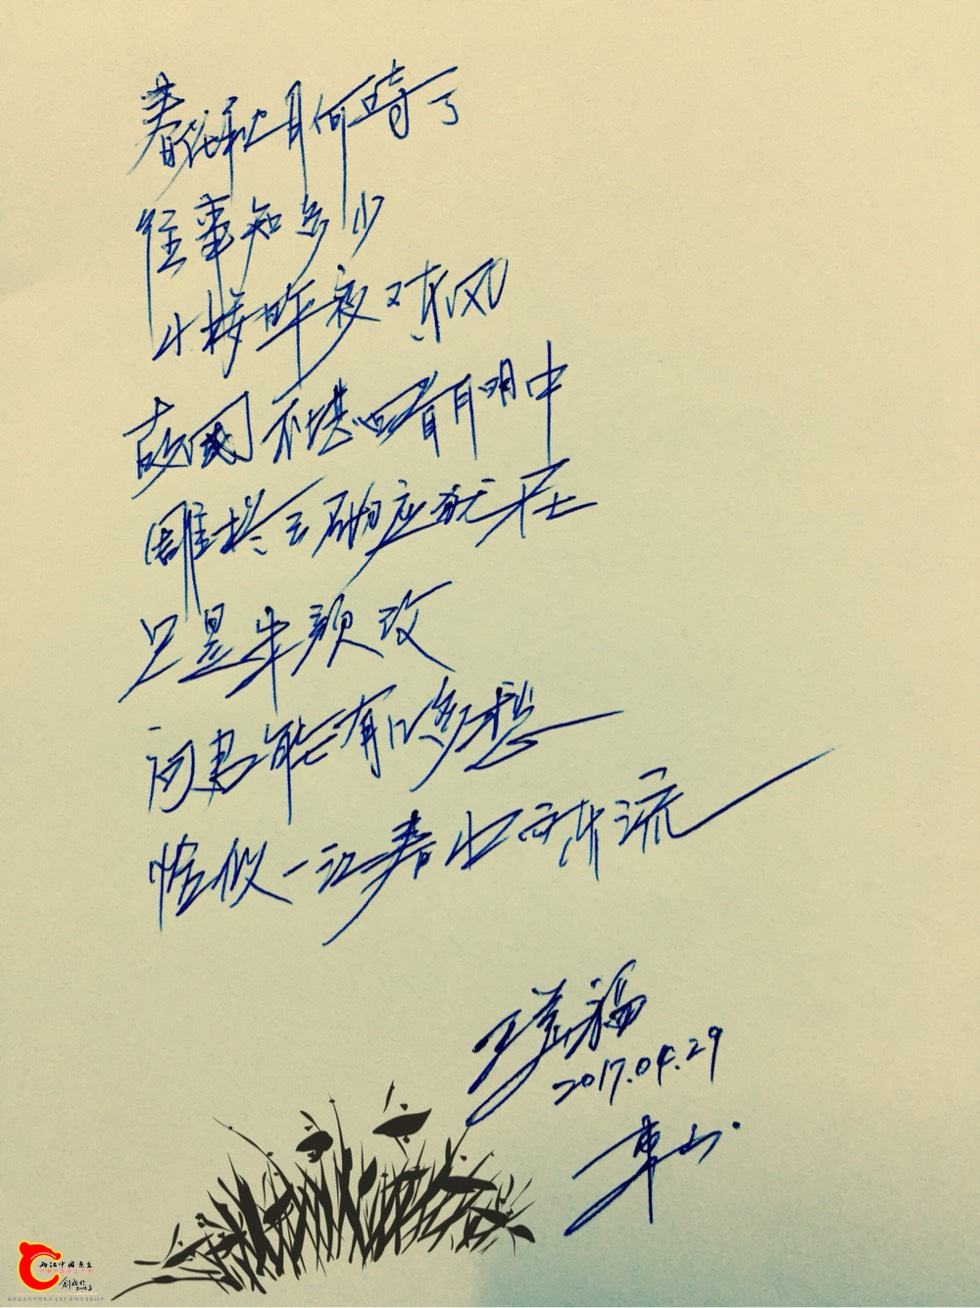 春花秋月何時了
往事知多少
小楼昨夜又东风
故國不堪回首月明中
雕栏玉砌应犹在
只是朱颜改
问君能有几多愁
恰似一江春水向东流
福
2017.04.29
山